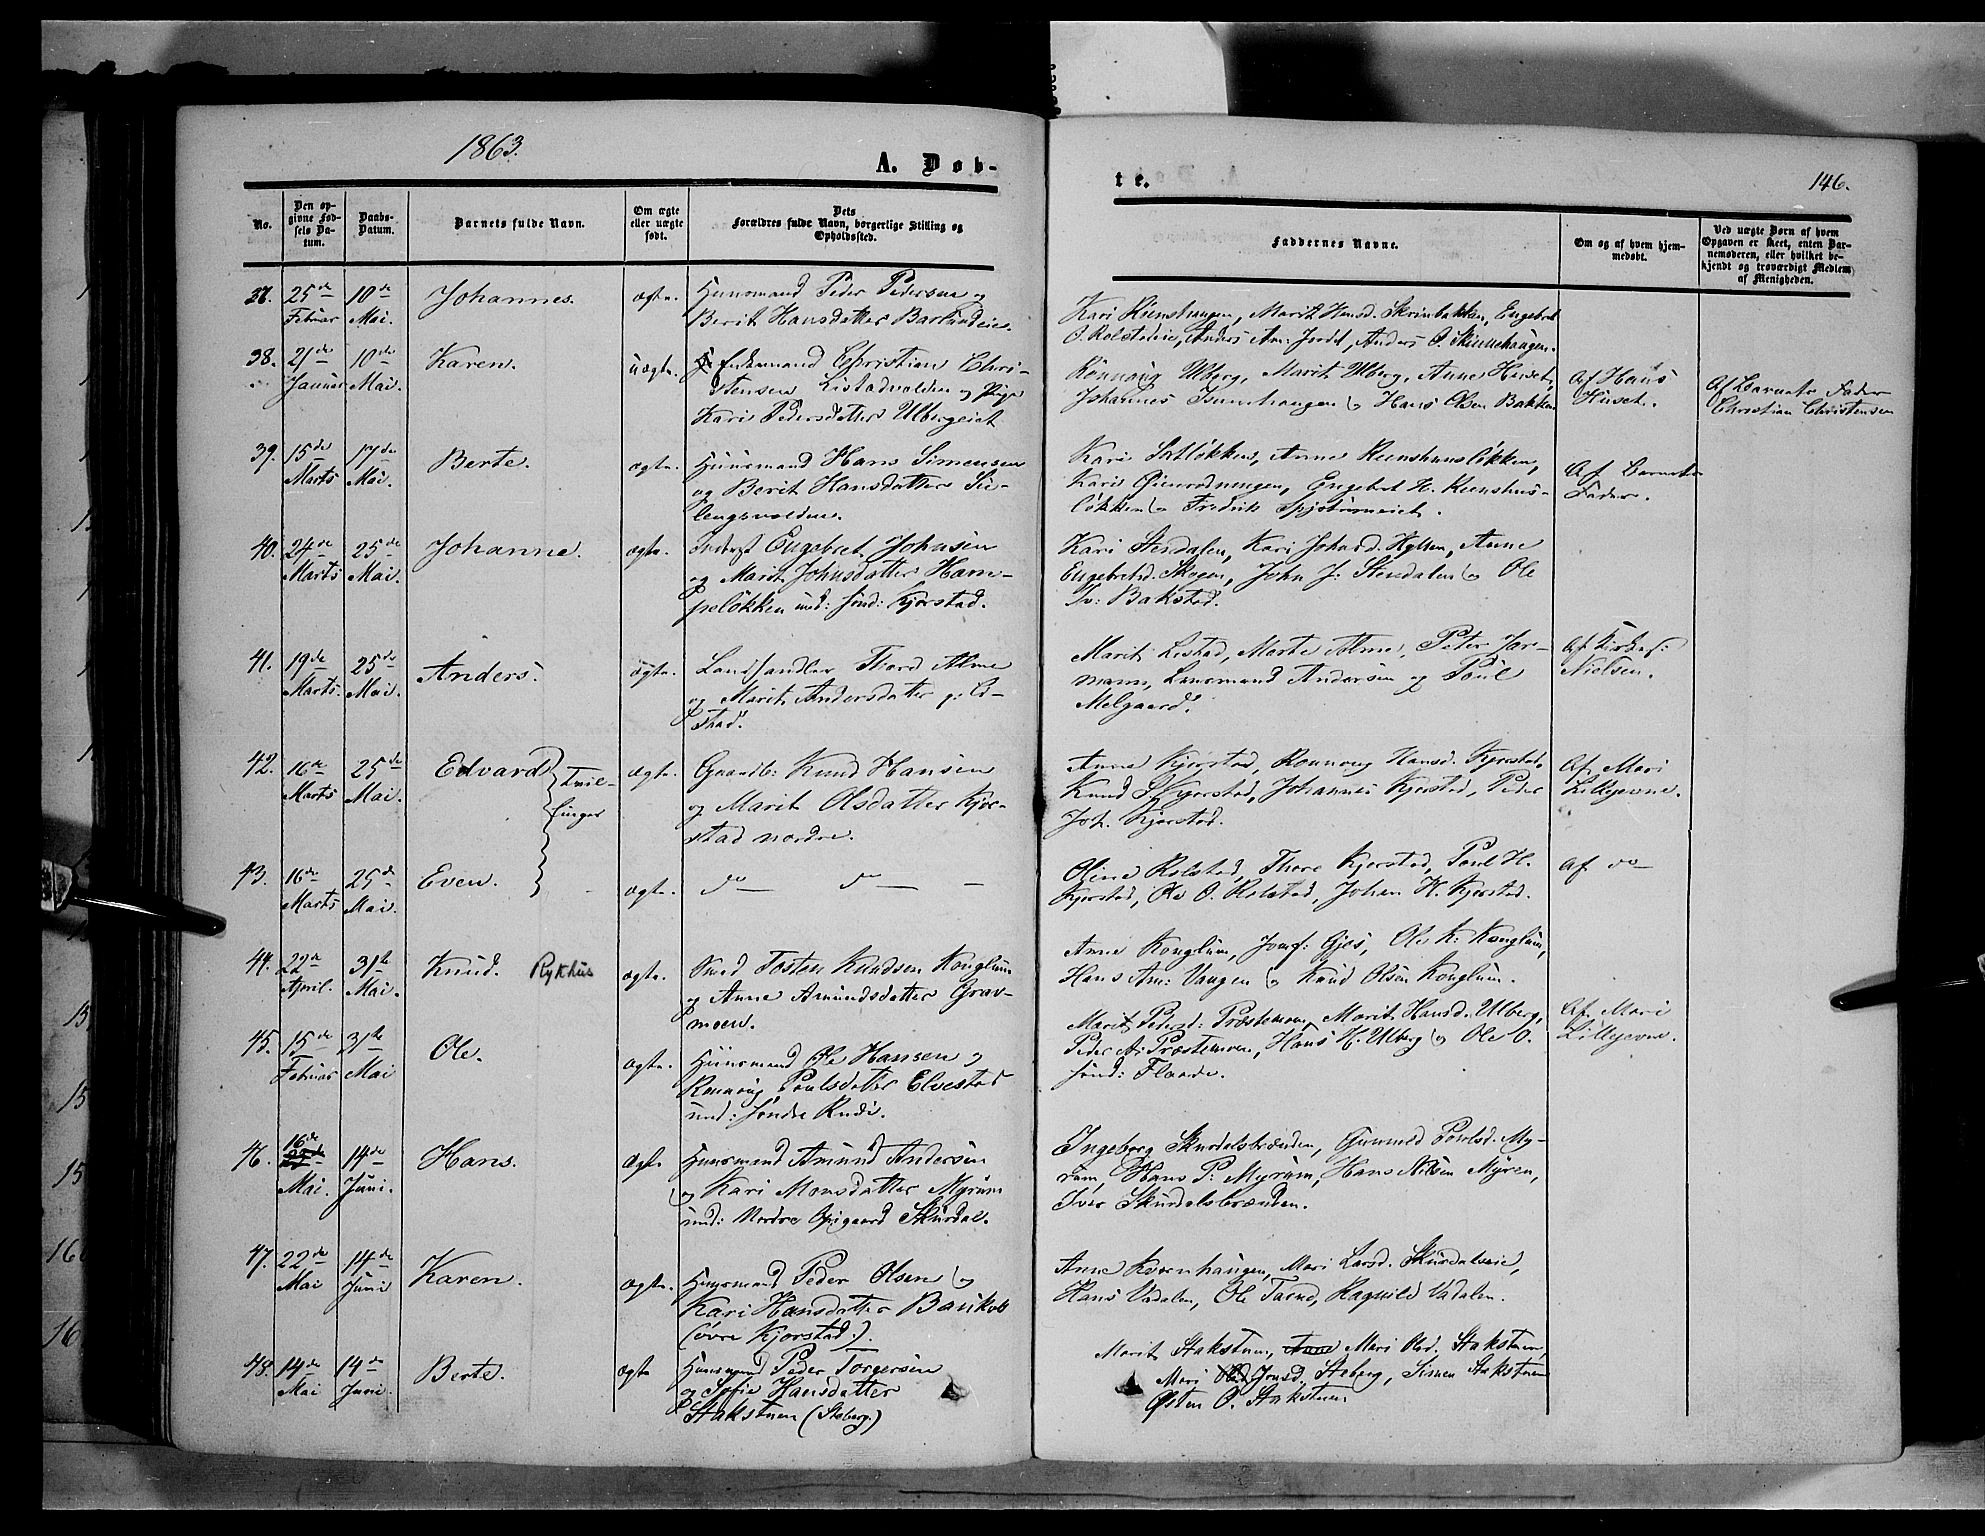 1863.
A. Døb-
te.
146.
No.
Den op-
givne Fød-
sels Da-
tum.
Daabs-
Datum.
Barnets fulde Navn.
Om ægte
eller uægte
født.
Dets
Forældres fulde Navn, borgerlige Stilling og
Opholdssted.
Faddernes Navne.
Om og af hvem hjem-
medøbt.
Ved uægte Børn af hvem
Opgaven er skeet, enten Bar-
nemoderen, eller hvilket be-
kjendt og troværdigt Medlem
af Menigheden.
37. 25de Februar 10de Mai. Johannes. ægte.
Huusmand Peder Pedersen og
Berit Hansdatter
Kari Marit Hansd. Skrinbakken, Engebret
O. Rolstadeie, Anders Am: Anders O.
38. 21de Januar 10de Mai. Karen. uægte.
Enkemand Christian Chri-
stensen Listadvolden og Pige
Kari Pedersdatter Ulbergeiet
Rønnaug Ulberg, Marit Ulberg, Anne Huset,
Johannes og Hans Olsen Bakken
Af Hans
Huset.
Af Barnets Fader
Christian Christensen
39. 15de Marts 17de Mai. Berte. ægte.
Huusmand Hans Simensen
og Berit Hansdatter Sü-
lengsvolden.
Kari Anne
Kari Engebret H.
løkken og Fredrik
Af Barnets
Fader.
40. 24de Marts 25de Mai. Johanne. ægte.
Inderst Engebret Johnsen
og Marit Johnsdatter Ham-
peløkken und: sønd: Kjorstad.
Kari Stendalen, Kari Johnsd. Anne
Engebretsd. Skogen, John J: Stendalen og Ole
Iv: Bakstad.
41. 19de Marts. 25de Mai. Anders. ægte.
Landhandler Thord Alme
og Marit Andersdatter
stad.
Marit Listad, Marte Alme, Peter Jor-
mann, Lensmand Andersen og Poul
Melgaard.
Af Kirkes:
Nielsen.
42. 16de Marts 25de Mai. Edvard Tvil-
linger
ægte.
Gaardb: Knud Hansen
og Marit Olsdatter Kjor-
stad nordre.
Anne Kjorstad, Rønnoug Hansd. Kjorstad,
Knud Kjorstad, Johannes Kjorstad, Peder
Joh. Kjorstad.
Af Mari
Lillejevne.
43. 16de Marts 25de Mai. Even. ægte. do — do — —
Oline Rolstad, Thore Kjorstad, Poul H.
Kjorstad, Ole O. Rolstad, Johan H. Kjorstad.
af do —
44. 22de April. 31te Mai. Knud. Rykhus ægte.
Smed Tosten Knudsen Konglum
og Anne Amundsdatter Grav-
moen.
Anne Konglum, Jomf: Gjøs, Ole K: Konglum,
Hans Am: Vangen og Knud Olsen Konglum.
45. 15de Februar 31te Mai Ole. ægte.
Huusmand Ole Hansen og
Rønnoug Poulsdatter Elvestad
und: søndre Rudi.
Marit Pedersd: Prestemoen, Marit Hansd. Ulberg,
Peder A: Prestemoen, Hans H. Ulberg og Ole O.
sønd: Flaade.
Af Mari
Lillejevne.
46. 16de Mai. 14de Juni. Hans. ægte
Huusmand Amund Andersen
og Kari Monsdatter Myrum
und: Nordre Opigaard Skurdal.
Ingeborg Skurdalsbrænden, Gunnild Poulsd. My-
rum, Hans P: Myrum, Hans Nilsen Myren,
Iver Skurdalsbrænden.
47. 22de Mai 14de Juni Karen. ægte.
Huusmand Peder Olsen og
Kari Hansdatter Baukoll
(øvre Kjorstad).
Anne Kvernhaugen, Mari Larsd. Skurdalseie,
Hans Vadalen, Ole Taend, Ragnild Vadalen.
48. 14de Mai 14de Juni. Berte. ægte
Huusmand Peder Torgersen
og Sofie Hansdatter
Stakstuen (Steberg.)
Marit Stakstuen, Mari Olsd. Stakstuen
Mari Jonsd. Steberg, Simen Stakstuen
Østen O. Stakstuen